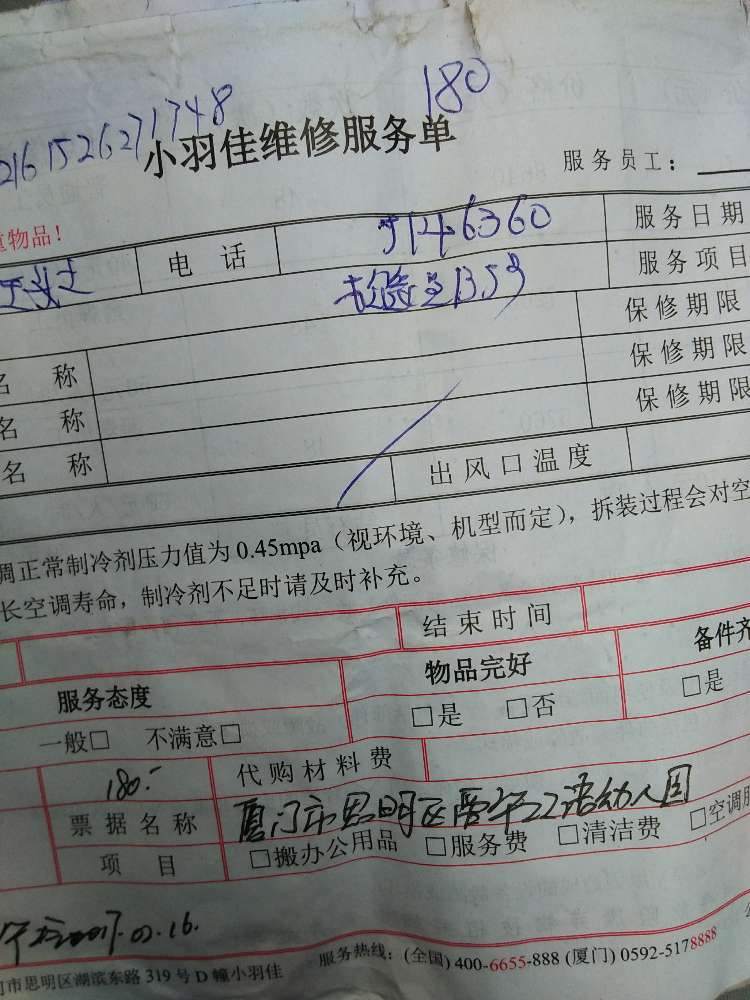 2161526271748 180
小羽佳维修服务单
服务员工：
物品！
电话 5146360 服务日期
服务项目
名称 保修期限
名称 保修期限
名称 保修期限
出风口温度
调正常制冷剂压力值为0.45mpa（视环境、机型而定），拆装过程会对空
长空调寿命，制冷剂不足时请及时补充。
结束时间
服务态度 物品完好 备件齐
一般□ 不满意□ □是 □否 □是
180.- 代购材料费
票据名称 厦门市思明区 幼儿园
项目 □搬办公用品 □服务费 □清洁费 □空调服
门市思明区湖滨东路319号D幢小羽佳 服务热线：(全国) 400-6655-888 (厦门) 0592-5178888